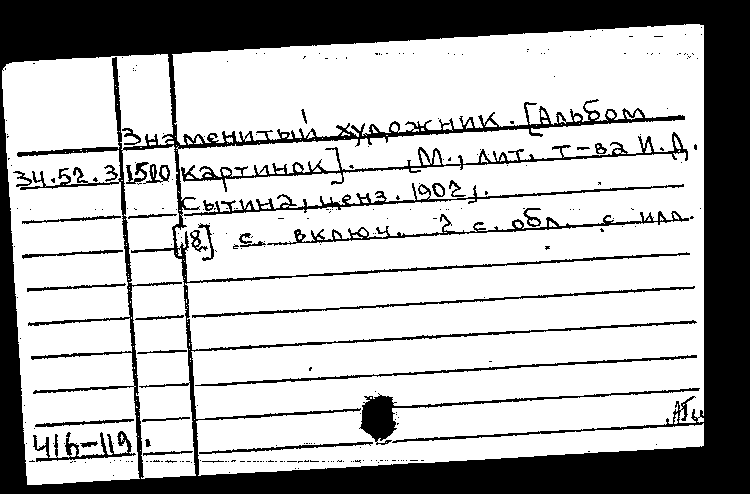 Знаменитый художник. [Альбом
34.52.3 1500 картинок]. [М., лит. т-ва И.Д.
Сытина, ценз. 1902].
[18] с. включ. 2 с. обл. с илл.
416-119.